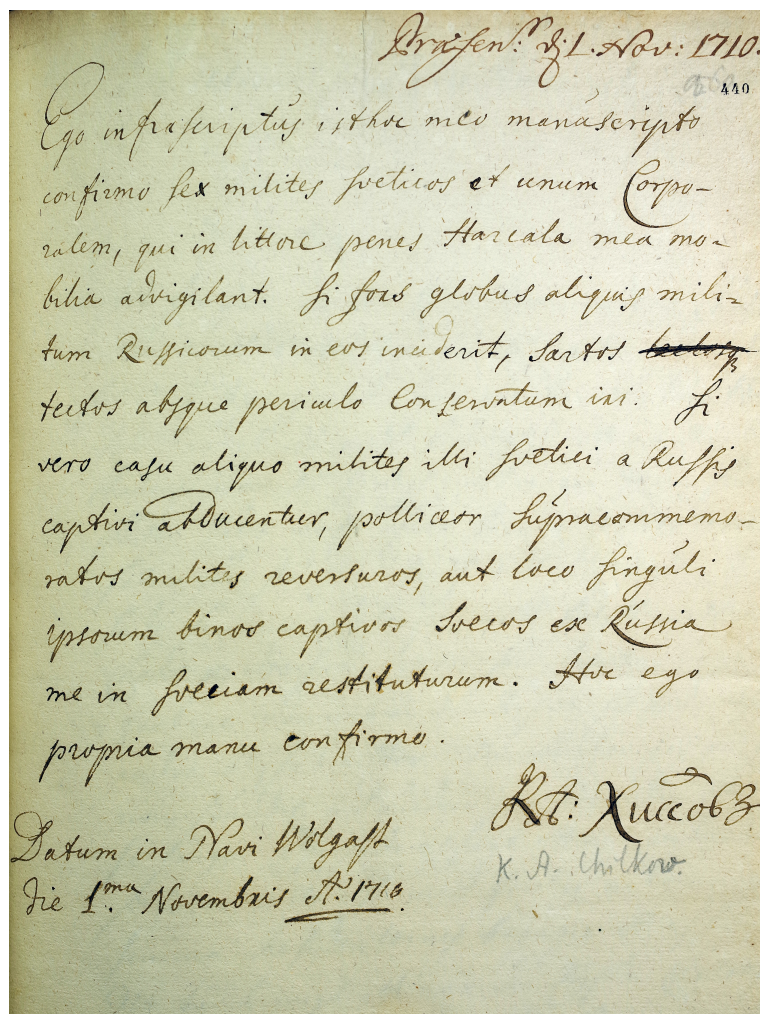 Præsen: d. 1. Nov: 1710.
440
Ego infrascriptus isthoc meo manuscripto
confirmo sex milites sveticos et unum Corpo-
ralem, qui in littore penes Harcala mea mo-
bilia advigilant. Si fors globus aliquis mili-
tum Russicorum in eos inciderit, sartos
tectos absque periculo Conservatum iri. Si
vero casu aliquo milites illi svetici a Russis
captivi abducentur, polliceor supracommemo-
ratos milites reversuros, aut loco singuli
ipsorum binos captivos Svecos ex Russia
me in sveciam restituturum. Hoc ego
propria manu confirmo.
K A:
K. A. Chilkow.
Datum in Navi Wolgast
die 1.ma Novembris Aº. 1710.